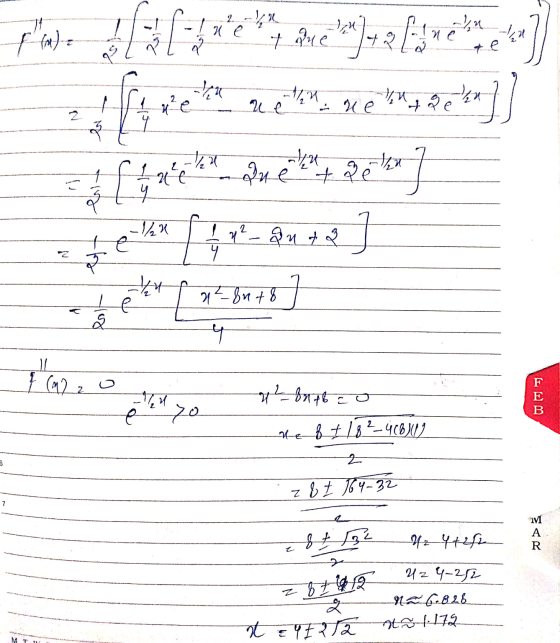 f''(x) = 1/2 [ -1/2 [ -1/2 x² e^(-1/2x) + 2x e^(-1/2x) ] + 2 [ -1/2 x e^(-1/2x) + e^(-1/2x) ] ]
= 1/2 [ [ 1/4 x² e^(-1/2x) - x e^(-1/2x) - x e^(-1/2x) + 2e^(-1/2x) ] ]
= 1/2 [ 1/4 x² e^(-1/2x) - 2x e^(-1/2x) + 2e^(-1/2x) ]
= 1/2 e^(-1/2x) [ 1/4 x² - 2x + 2 ]
= 1/2 e^(-1/2x) [ x² - 8x + 8 ] / 4
f''(x) = 0
e^(-1/2x) > 0
x² - 8x + 8 = 0
x = 8 ± √(8² - 4(8)(1)) / 2
= 8 ± √(64 - 32) / 2
= 8 ± √32 / 2
= 8 ± 4√2 / 2
x = 4 ± 2√2
x = 4 + 2√2
x = 4 - 2√2
x ≈ 6.828
x ≈ 1.172
FEB
MAR
7